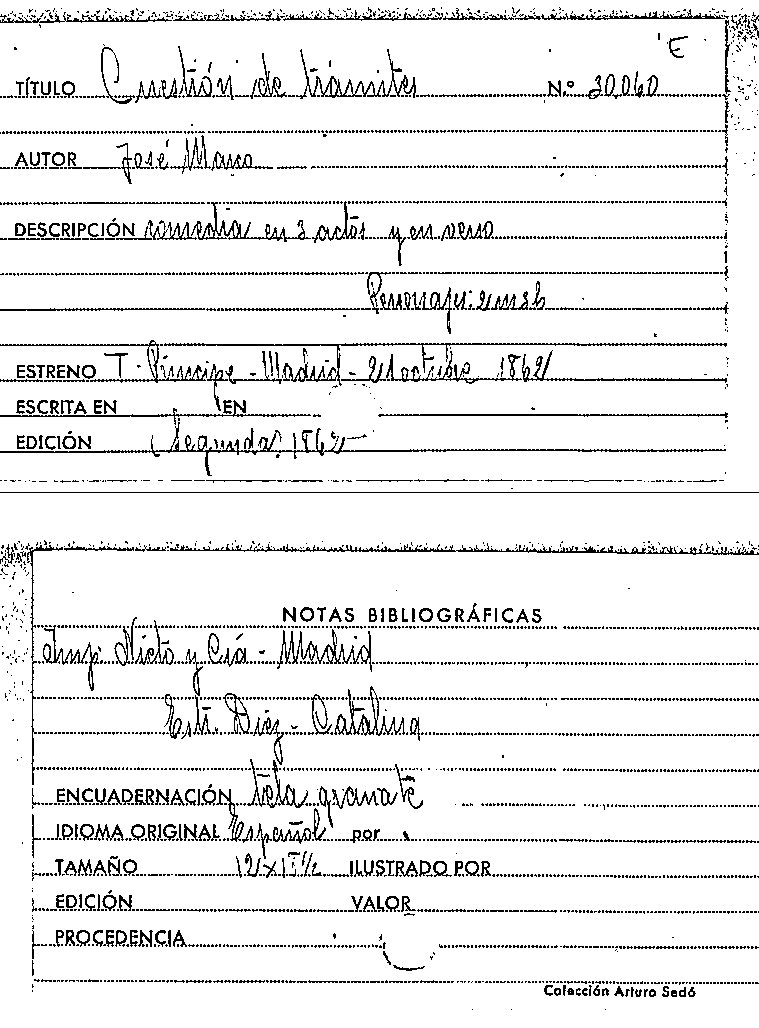 E
TÍTULO Cuestión de trámites N.º 30.060
AUTOR José Marco
DESCRIPCIÓN comedia en 3 actos y en verso
Personajes:
ESTRENO T. Príncipe - Madrid - 21 octubre 1862
ESCRITA EN EN
EDICIÓN (Segunda) 1862
NOTAS BIBLIOGRÁFICAS
Imp. Nieto y Cía - Madrid
Estr. Diez - Catalina
ENCUADERNACIÓN tela granate
IDIOMA ORIGINAL Español por
TAMAÑO ILUSTRADO POR
EDICIÓN VALOR
PROCEDENCIA
Colección Arturo Sedó